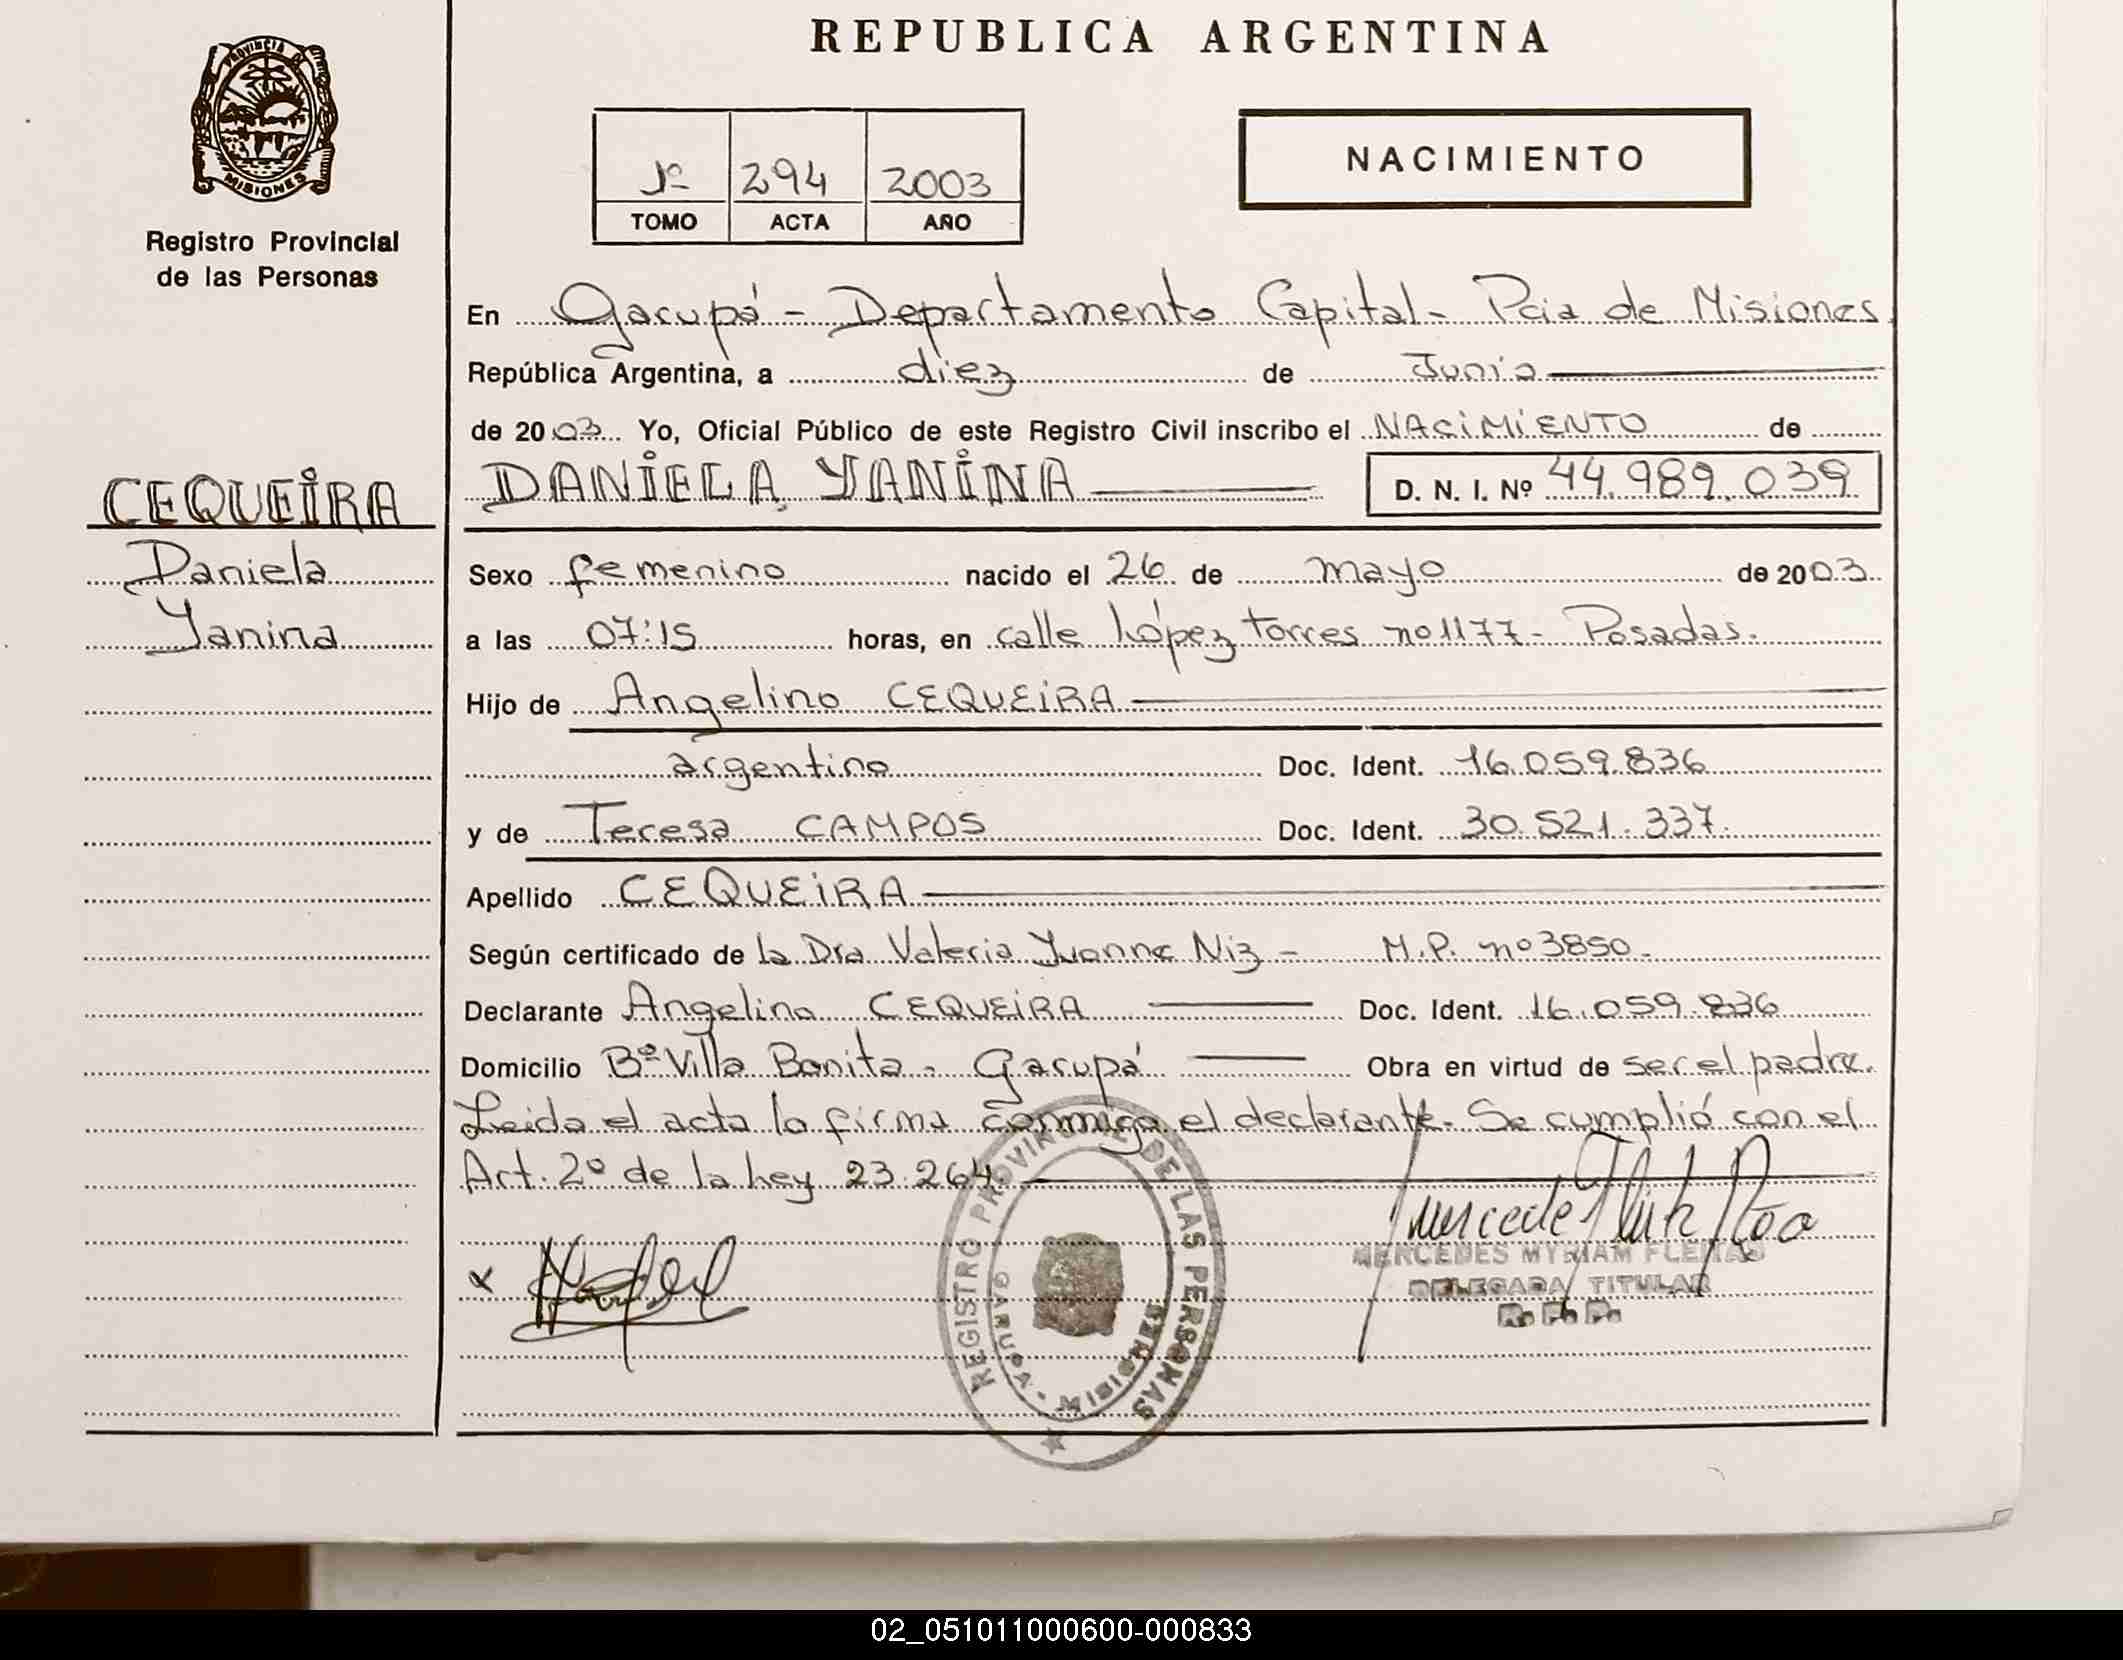 REPUBLICA ARGENTINA
PROVINCIA DE
MISIONES
Registro Provincial
de las Personas
1º 294 2003
TOMO ACTA AÑO
NACIMIENTO
En Garupá - Departamento Capital - Pcia de Misiones
República Argentina, a diez de Junio
de 2003 Yo, Oficial Público de este Registro Civil inscribo el NACIMIENTO de
DANIELA YANINA D. N. I. Nº 44.989.039
CEQUEIRA
Daniela
Yanina
Sexo femenino nacido el 26 de mayo de 2003
a las 07:15 horas, en calle López torres nº 1177 - Posadas.
Hijo de Angelino CEQUEIRA
argentino Doc. Ident. 16.059.836
y de Teresa CAMPOS Doc. Ident. 30.521.337.
Apellido CEQUEIRA
Según certificado de la Dra Valeria Yvonne Niz - M.P. nº 3850.
Declarante Angelino CEQUEIRA Doc. Ident. 16.059.836
Domicilio Bº Villa Bonita - Garupá Obra en virtud de ser el padre.
Leida el acta la firma conmigo el declarante. Se cumplió con el
Art. 2º de la Ley 23.264
REGISTRO PROVINCIAL DE LAS PERSONAS
GARUPA - MISIONES
x
MERCEDES MYRIAM FLEITAS
DELEGADA TITULAR
R. P. P.
02_051011000600-000833